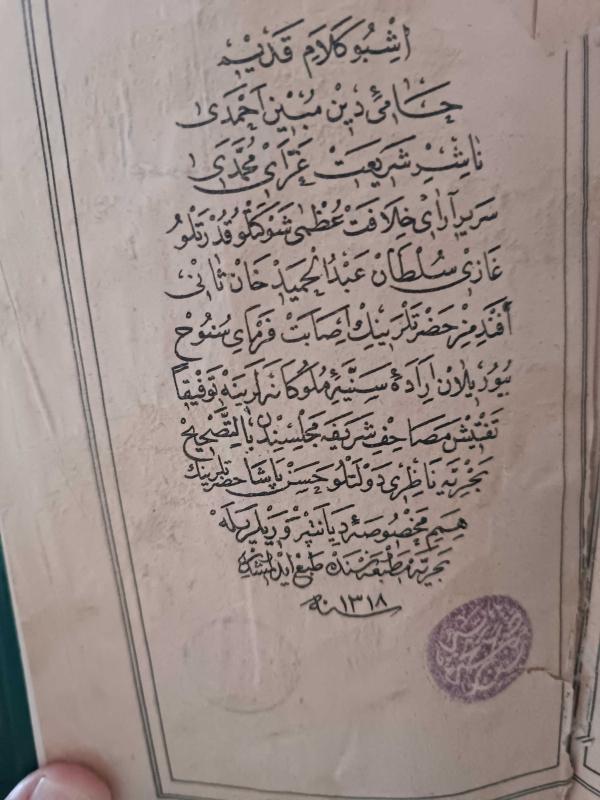 اشبو كلام قديم
حامئ دين مبين احمدى
ناشر شريعت غراى محمدى
سرير آراى خلافت عظمى شوكتلو قدرتلو
غازى سلطان عبد الحميد خان ثانى
أفندمز حضرتلرينك اصابت فرماى سنوح
بيوريلان ارادۀ سنيۀ ملوكانه لرينه توفيقاً
تفتيش مصاحف شريفه مجلسندن بالتصحيح
بحريه ناظرى دولتلو حسن پاشا حضرتلرينك
همم مخصوصۀ ديانتپروريلريله
بحريه مطبعه سنده طبع ايدلمشدر
سنه ١٣١٨